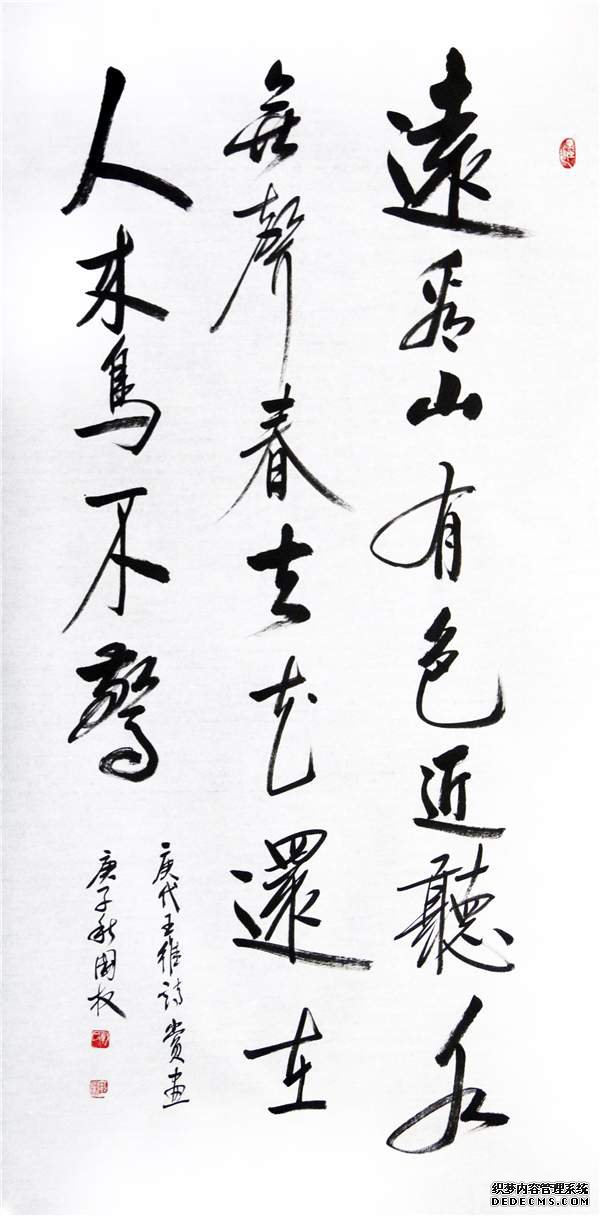 遠看山有色近聽水
無聲春去花還在
人來鳥不驚
唐代王維詩賞畫
庚子秋國权
织梦内容管理系统
DEDECMS.COM